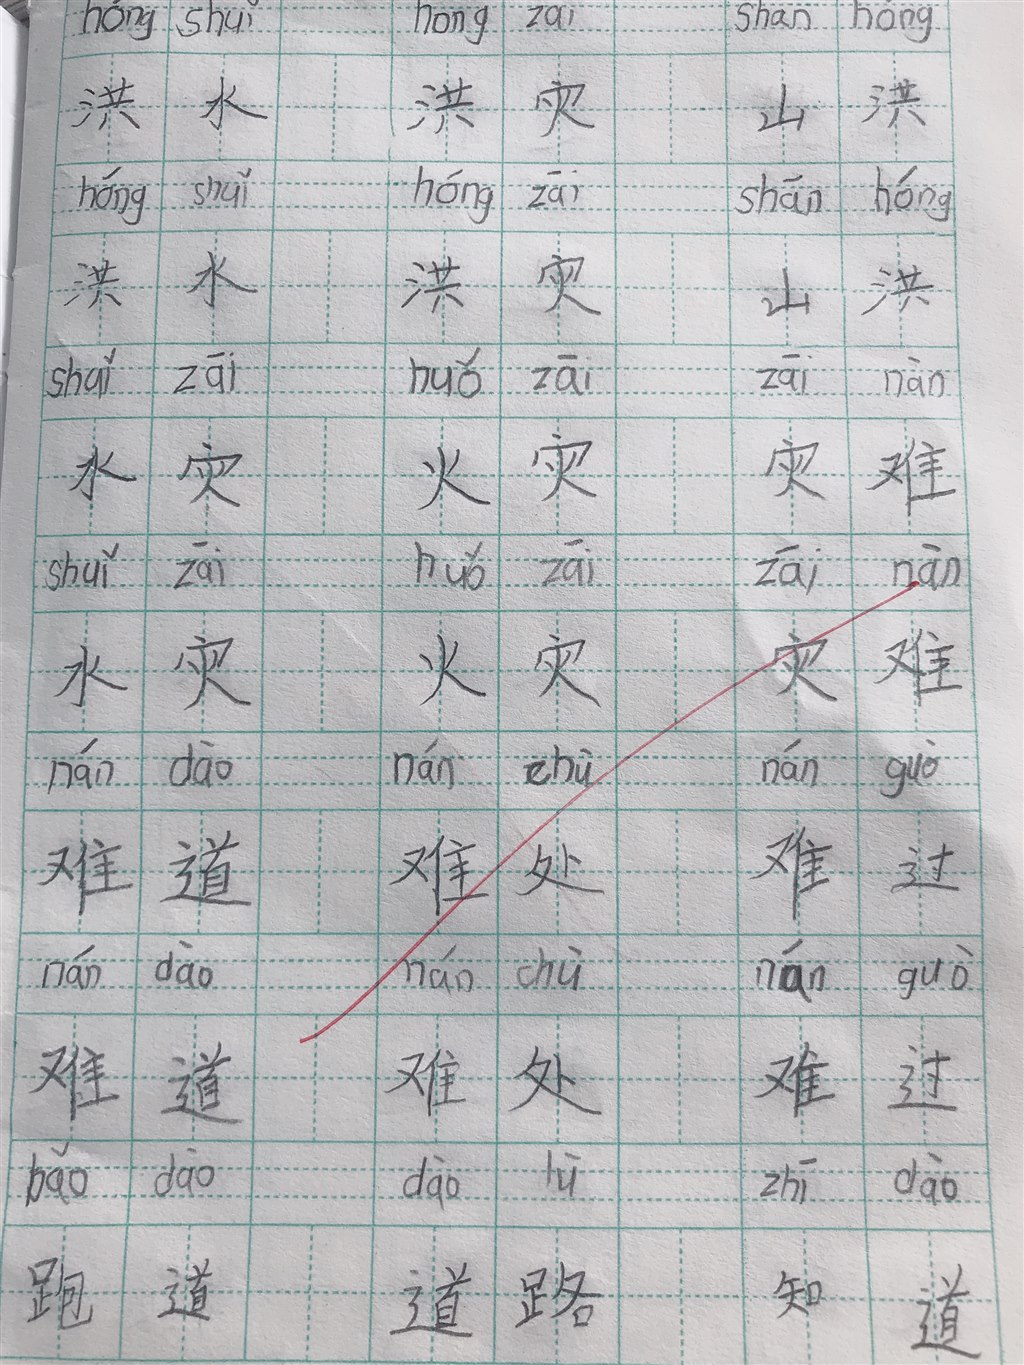 hóng shuǐ hóng zāi shān hóng
洪水 洪灾 山洪
hóng shuǐ hóng zāi shān hóng
洪水 洪灾 山洪
shuǐ zāi huǒ zāi zāi nàn
水灾 火灾 灾难
shuǐ zāi huǒ zāi zāi nàn
水灾 火灾 灾难
nán dào nán chù nán guò
难道 难处 难过
nán dào nán chù nán guò
难道 难处 难过
pǎo dào dào lù zhī dào
跑道 道路 知道